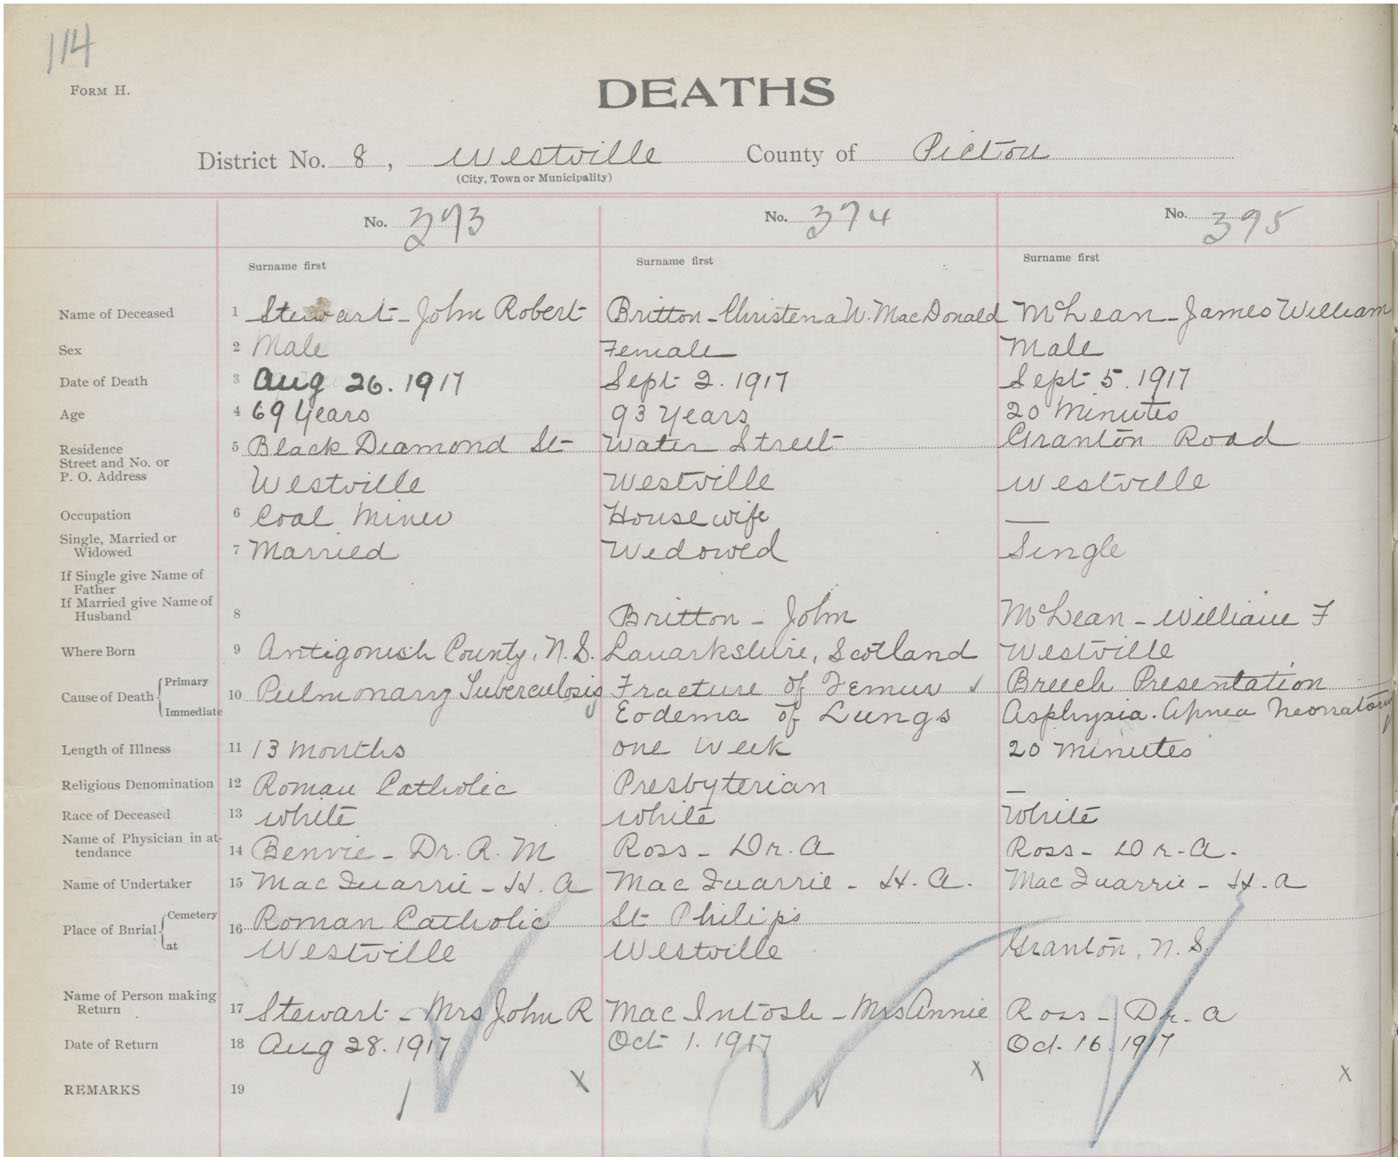 114
Form H.
DEATHS
District No. 8, Westville County of Pictou
(City, Town or Municipality)
No. 393 No. 394 No. 395
Surname first Surname first Surname first
Name of Deceased 1 Stewart - John Robert Britton - Christena W. MacDonald McLean - James William
Sex 2 Male Female Male
Date of Death 3 Aug 26. 1917 Sept 2. 1917 Sept 5. 1917
Age 4 69 Years 93 Years 20 Minutes
Residence 5 Black Diamond St Water Street Granton Road
Street and No. or
P. O. Address Westville Westville Westville
Occupation 6 Coal Miner Housewife —
Single, Married or
Widowed 7 Married Widowed Single
If Single give Name of
Father
If Married give Name of
Husband 8 Britton - John McLean - William F
Where Born 9 Antigonish County, N.S. Lanarkshire, Scotland Westville
Cause of Death { Primary 10 Pulmonary Tuberculosis Fracture of Femur ✓ Breech Presentation
Immediate Eodema of Lungs Asphyxia. Apnea Neonatory
Length of Illness 11 13 Months One Week 20 Minutes
Religious Denomination 12 Roman Catholic Presbyterian —
Race of Deceased 13 White White White
Name of Physician in at-
tendance 14 Benvie - Dr. R. M Ross - Dr. A Ross - Dr - A.
Name of Undertaker 15 MacQuarrie - H. A MacQuarrie - H. A. MacQuarrie - H. A
Place of Burial { Cemetery 16 Roman Catholic St Philips
at Westville Westville Granton, N. S.
Name of Person making
Return 17 Stewart - Mrs John R MacIntosh - Mrs Annie Ross - Dr - A
Date of Return 18 Aug 28. 1917 Oct 1. 1917 Oct. 16. 1917
REMARKS 19 x x x